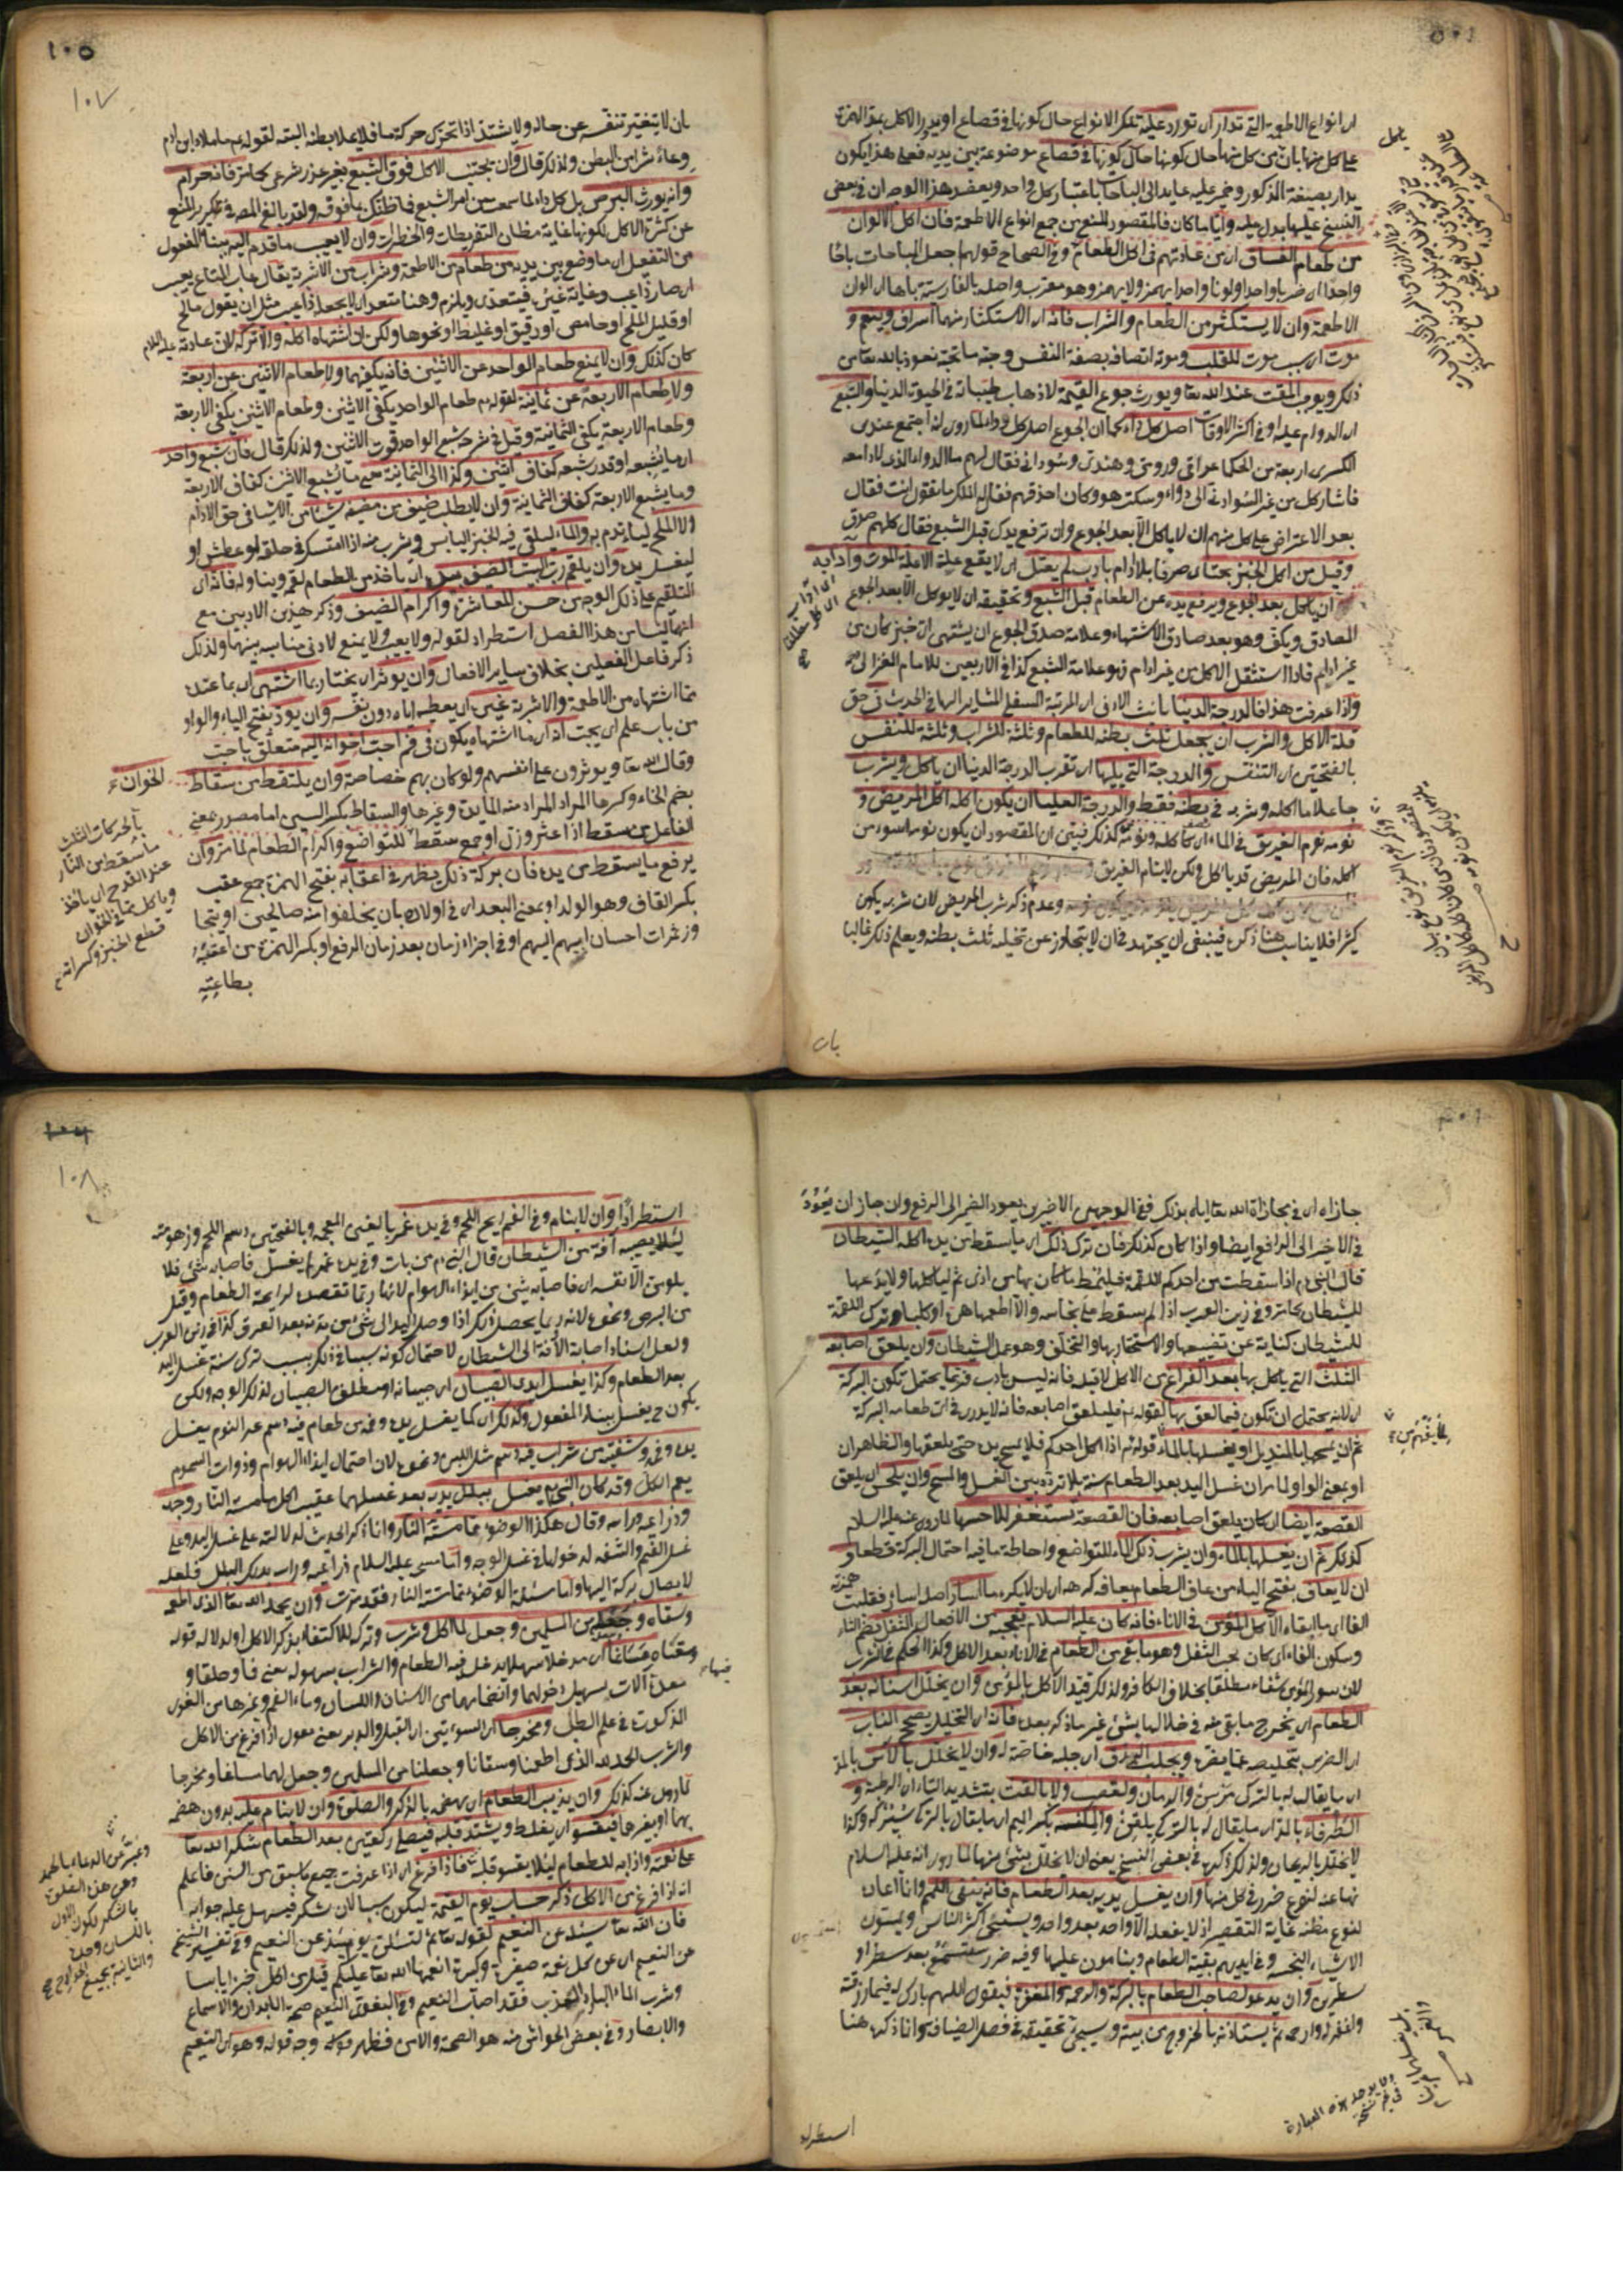 اى انواع الاطعمة التى تدار اى تورد عليه تلك الانواع حال كونها فى قصاع او يدور الاكل بمد الهمزة
على كل منها بان كل منها حال كونها حال كونها فى قصاع موضوعة بين يديه فعلى هذا يكون
يدار بصيغة المذكور وضمير عليه عايد الى الباحات باعتبار كل واحد ويعضد هذا الوجه ان فى بعض
النسخ عليها بدل عليه واياما كان فالمقصود المنع من جمع انواع الاطعمة فان اكل الالوان
من طعام الفساق اى من عادتهم فى اكل الطعام وفى الصحاح قولهم اجعل الباحات باجا
واحدا اى ضربا واحدا ولونا واحدا يهمز ولا يهمز وهو معرب واصله بالفارسية باها اى الوان
الاطعمة وان لا يستكثر من الطعام والشراب فانه اى الاستكثار منهما اسراف وينعم و
موت اى سبب موت للقلب وموته اتصافه بصفة النفس وجنة مانحة نعوذ بالله تعالى من
ذلك ويوجب المقت عند الله تعا ويورث جوع القيمة لاذهاب طيباته فى الحيوة الدنيا والشبع
اى الدوام عليه او فى اكثر الاوقات اصل كل داء كما ان الجوع اصل كل دواء لما روى انه اجتمع عند
الكسرى اربعة من الحكما عراقى ورومى وهندى وسودانى فقال لهم ما الدواء الذى لا داء معه
فاشار كل من غير السودانى الى دواء وسكت هو وكان احذقهم فقال له الملك ما تقول انت فقال
بعد الاعتراض على كل منهم ان لا ياكل الا بعد الجوع وان ترفع يدك قبل الشبع فقال كلهم صدق
وقيل من اكل الخبز بحتا اى صرفا بلا ادام بادب لم يعتل اى لا يقع علية الا علة الموت وآدابه
ان ياكل بعد الجوع ويرفع يده عن الطعام قبل الشبع وتحقيقه ان لا يوكل الا بعد الجوع
الصادق ويكف وهو بعد صادق الاشتهاء وعلامة صدق الجوع ان يشتهى اى خبز كان من
غير ادام فاذا استثقل الاكل من غير ادام فهو علامة الشبع كذا فى الاربعين للامام الغزالى
واذا عرفت هذا فالدرجة الدنيا تانيث الادنى اى المرتبة السفلى المشار اليها فى الحديث فى حق
قلة الاكل والشرب ان يجعل ثلث بطنه للطعام وثلثه للشراب وثلثه للنفس
بالفتحتين اى التنفس والدرجة التى يليها اى تقرب الدرجة الدنيا ان ياكل ويشرب
جاعلا ما اكله وشربه فى بطنه فقط والدرجة العليا ان يكون اكله اكل المريض و
نومه نوم الغريق فى الماء اى كاكله ونومه كذلك فيتبين ان المقصود ان يكون نومه اسوء من
اكله فان المريض قد ياكل ولكن لا ينام الغريق
وعدم ذكر شرب المريض لان شربه يكون
كثيرا فلا يناسب هنا ذكره فينبغى ان يجتهد فان لا يتجاوز عن تخيله ثلث بطنه ويعلم ذلك غالبا
اى آداب
الاكل مطلقا
بان
١٠٥
١٠٧
بان لا يتغير تنفسه عن حاله ولا يشتد اذا تحرك حركة ما فلا يملا بطنه البتة لقوله عم ما ملا ابن ادم
وعاء شرا من البطن ولذلك قال وان يجتنب الاكل فوق الشبع بغير عذر شرعى كما مر فانه حرام
وانه يورث البرص بل كل داء لما سمعت من امر الشبع فما ظنك بما فوقه ولقد بالغ المص فى تكرير المنع
عن كثرة الاكل لكونها غاية مظان التفريطات والخطرات وان لا يعيب ما قدم اليه ببناء المفعول
من التفعيل اى ما وضع بين يديه من طعام من الاطعمة وشراب من الاشربة يقال عاب المتاع يعيب
اى صار ذا عيب وعابه غيره فيتعدى ويلزم وهنا متعد اى لا يجعله ذا عيب مثل ان يقول مالح
او قليل الملح او حامض او رقيق او غليظ او نحوها ولكن ان اشتهاه اكله والا تركه لان عادته عليه السلام
كان كذلك وان لا يمنع طعام الواحد عن الاثنين فانه يكفيهما ولا طعام الاثنين عن اربعة
ولا طعام الاربعة عن ثمانية لقوله عم طعام الواحد يكفى الاثنين وطعام الاثنين يكفى الاربعة
وطعام الاربعة يكفى الثمانية وقيل فى شرحه شبع الواحد قوت الاثنين ولذلك قال فان شبع واحد
اى ما يشبعه او قدر شبعه كفاف اثنين وكذا الى الثمانية يعنى ما يشبع الاثنين كفاف الاربعة
وما يشبع الاربعة كفاف الثمانية وان لا يطلب ضيف من مضيفه شيئا من الاشياء فى حق الادام
الا الملح ليتدم به والماء ليلقى فيه الخبز اليابس ويشرب منه اذا استسكر فى حلقه او عطش او
ليغسل يده وان يلقم رب البيت الضيف بيده اى ياخذ من الطعام لقمة ويناوله فانه اى
التلقيم على ذلك الوجه من حسن المعاشرة واكرام الضيف وذكر هذين الادبين مع
انهما ليسا من هذا الفصل استطرادا لقوله ولا يعيب ولا يمنع لادنى مناسبة بينهما ولذلك
ذكر فاعل الفعلين بخلاف ساير الافعال وان يوثر اى يختار بما اشتهى اى بما عنده
مما اشتهاه من الاطعمة والاشربة غيره اى يعطيه اياه دون نفسه وان يود بفتح الياء والواو
من باب علم اى يحب انه اى ما اشتهاه يكون فى فم احب اخوانه اليه متعلق باحب
وقال الله تعا ويوثرون على انفسهم ولو كان بهم خصاصة وان يلتقط من سقاط
بضم الخاء وكسرها المراد المراد منه المايدة وغيرها والسقاط بكسر السين اما مصدر بمعنى
الفاعل من سقط اذا عثر وزل او جمع سقط للتواضع واكرام الطعام لما مر وان
يرفع ما يسقط من يده فان بركة ذلك يظهر فى اعقابه بفتح الهمزة جمع عقب
بكسر القاف وهو الولد او بمعنى البعد اى فى اولاده بان يخلفوا منه صالحين او يتجا
وز ثمرات احسان ابيهم اليهم او فى اجزاء زمان بعد زمان الرفع او بكسر الهمزة من اعقبه
بطاعته
الخوان
بالحركات الثلث
ما سقط من النار
عند القدح اى ياخذ
وياكل مما فى الخوان
قطع الخبز وكسراته
جازاه اى فى مجازاة الله تعا اياه بذلك ففى الوجهين الاخيرين يعود الضمير الى الرفع وان جاز ان يعود
فى الاخير الى الرافع ايضا واذا كان كذلك فان ترك ذلك اى ما يسقط من يده اكله الشيطان
قال النبى عم اذا سقطت من احدكم اللقمة فليمط ما كان بها من اذى ثم لياكلها ولا يدعها
للشيطان كما مر وفى زين العرب اذا لم يسقط على نجاسة والا اطعمها هرة او كلبا وترك اللقمة
للشيطان كناية عن تضييعها والاستحقار بها والتخلق وهو عمل الشيطان وان يلعق اصابعه
الثلث التى ياكل بها بعد الفراغ من الاكل لا قبله فانه ليس بادب فربما يحتمل تكون البركة
اى لانه يحتمل ان تكون فيما لعق بها لقوله عم فليلعق اصابعه فانه لا يدرى فى اى طعامه البركة
ثم ان يمسحها بالمنديل او يغسلها بالماء لقوله عم اذا اكل احدكم فلا يمسح يده حتى يلعقها والظاهر ان
او بمعنى الواو لما مر ان غسل اليد بعد الطعام سنة بلا تردد بين الغسل والمسح وان يلحس اى يلعق
القصعة ايضا اى كان يلعق اصابعه فان القصعة يستغفر للاحسها لما روى عنه عليه السلام
كذلك ثم ان يغسلها بالماء وان يشرب ذلك الماء للتواضع واحاطة ما فيه احتمال البركة قطعا و
ان لا يعاف بفتح الياء من عاف الطعام يعافه كرهه اى ان لا يكره ما اسار اصله اساءر فقلبت
الفا اى ما ابقاه الاكل المؤمن فى الاناء فانه كان عليه السلام يعجبه من الافعال الثفل بضم الثاء
وسكون الفاء اى كان يحب الثفل وهو ما بقى من الطعام فى الاناء بعد الاكل وكذا الحكم فى الشرب
لان سور المؤمن شفاء مطلقا بخلاف الكافر ولذلك قيد الاكل بالمؤمن وان يخلل اسنانه بعد
الطعام اى يخرج ما بقى منه فى خلالها بشئ غير ما ذكر بعده فانه اى التخليل يصحح الناب
اى الضرس بتخليصه عما يضره ويجلب الرزق اى جلبة خاصة له وان لا يخلل بالآس بالمد
اى ما يقال له بالترك مرسين والرمان والقصب ولا بالقت بتشديد التاء اى الرطبة و
الطرفاء بالمد اى ما يقال له بالترك يلغين والمكنسة بكسر الميم اى ما يقال بالترك سپرگه وكذا
لا يخلل بالريحان ولذلك ذكره فى بعض النسخ يعنى ان لا يخلل بشئ منها لما روى انه عليه السلام
نها عنه لنوع ضرر فى كل منها وان يغسل يديه بعد الطعام فانه ينفى اللمم وانما اعاده
لنوع مظنة غاية التقصير اذ لا يفعله الا واحد بعد واحد ويستنجى اكثر الناس ويمسون
الاشياء النجسة وفى ايديهم بقية الطعام وينامون عليها وفيه ضرر ستسمعه بعد سطر او
سطرين وان يدعو لصاحب الطعام بالبركة والرحمة والمغفرة فيقول اللهم بارك له فيما رزقته
واغفر له وارحمه ثم يستاذنه بالخروج من بيته وسيجئ تحقيقه فى فصل الضيافة وانما ذكره هنا
استطرادا
١٠٨
استطرادا وان لا ينام وفى الفم ريح اللحم وفى يده غمر بالغين المعجمة وبالفتحتين دسم اللحم وزهومته
لئلا يصيبه آفة من الشيطان قال النبى عم من بات وفى يده غمر لم يغسله فاصابه شئ فلا
يلومن الا نفسه اى فاصابه شئ من ايذاء الهوام لانها ربما تقصده لرايحة الطعام وقيل
من البرص ونحوه لانه ربما يحصل ذلك اذا وصل اليد الى شئ من بدنه بعد العرق كذا فى زين العرب
ولعل اسناد اصابة الآفة الى الشيطان لاحتمال كونه سببا فى ذلك بسبب ترك سنة غسل اليد
بعد الطعام وكذا يغسل ايدى الصبيان اى صبيانه او مطلق الصبيان لذلك الوجه ولكن
يكون ح يغسل ببناء المفعول وكذلك اى كما يغسل يده وفمه من طعام فيه دسم عند النوم يغسل
يده وفمه وشفتيه من شراب فيه دسم مثل اللبن ونحوه لان احتمال ايذاء الهوام وذوات السموم
يعم الكل وقد كان النبى عم يغسل ببلل يديه بعد غسلهما عقيب اكل ما مسته النار وجهه
وذراعيه وراسه وقال هكذا الوضوء مما مسته النار وانما ذكر الحديث لدلالته على غسل اليد وعلى
غسل الفم والشفه لدخولها فى غسل الوجه وانما مسح عليه السلام ذراعيه وراسه بذلك البلل فلعله
لايصال بركة اليها واما مسئلة الوضوء مما مسته النار فقد مرت وان يحمد الله تعا الذى اطعمه
وسقاه وجعله من المسلمين وجعل لما اكل وشرب وتركه للاكتفاء بذكر الاكل اولا لدلالة قوله
وسقاه مساغا اى مدخلا سهلا يدخل فيه الطعام والشراب بسهولة يعنى فما وحلقا و
معدة آلات يسهل دخولها وانضمامها من الاسنان واللسان وماء الفم وغيرها من القوى
المذكورة فى علم الطب ومخرجا اى السوءتين اى القبل والدبر يعنى يقول اذا فرغ من الاكل
والشرب الحمد لله الذى اطعمنا وسقانا وجعلنا من المسلمين وجعل لهما مساغا ومخرجا
لما روى عنه كذلك وان يذيب الطعام اى يهضمه بالذكر والصلوة وان لا ينام عليه بدون هضمه
بهما او بغيرهما فيقسو اى يغلظ ويشتد قلبه فيصلى ركعتين بعد الطعام شكرا لله تعا
على نعمه واذابه للطعام لئلا يقسو قلبه فاذا فرغ اى اذا عرفت جميع ما سبق من السنن فاعلم
انه اذا فرغ من الاكل ذكر حساب يوم القيمة ليكون سببا لان يشكر فيسهل عليه جوابه
فان الله تعا سيسئله عن النعيم لقوله تعا ثم لتسئلن يومئذ عن النعيم وفى تفسير الشيخ
عن النعيم اى عن كل نعمة صغيرة وكبيرة انعمها الله تعا عليكم قيل من اكل خبزا يابسا
وشرب الماء البارد العذب فقد اصاب النعيم وفى البغوى النعيم صحة الابدان والاسماع
والابصار وفى بعض الحواشى منه هو الصحة والامن فظهر وجه قوله وهو اى النعيم
وعبر عن الدعاء بالحمد
بالشكر ليكون الاول
باللسان وحده